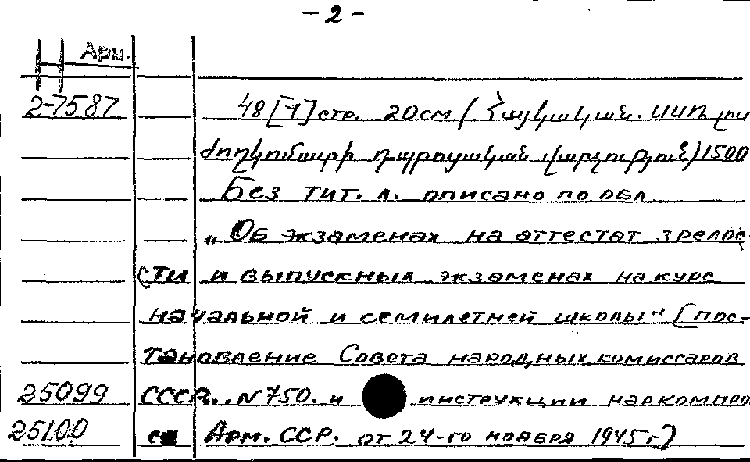 - 2 -
Арм.
2-7587 48 [1] стр. 20 см (Հայկական. ՍՍՌ լու
ժողկոմատի դպրոցական վարչություն) 1500
Без тит. л. описано по обл.
„Об экзаменах на аттестат зрелос-
ти и выпускных экзаменах на курс
начальной и семилетней школы" (пос-
тановление Совета народных комиссаров
25099 СССР. N 750. и инструкции наркомпро
25100 са Арм. ССР. от 24-го ноября 1945 г.)